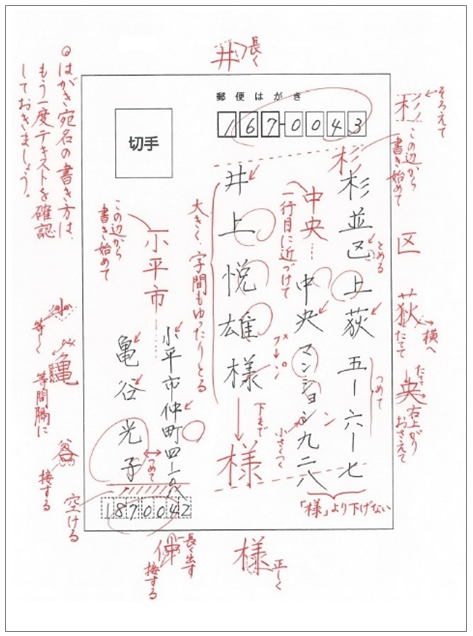 井 長く
郵便はがき
167-0043
切手
杉並区上荻五-六-七
中央マンション九二八
井上悦雄様
小平市仲町四-一〇八
亀谷光子
1870042
杉 そろえて
この辺から
書き始めて
杉
区
とめる
荻 横へ
たてて
央 たて
右上がり
おさえて
つめて
中央…
一行目に近づけて
マンション
小さくつく
「様」より下げない
大きく、字間もゆったりとる
下まで
様
様 正しく
小平市…
この辺から
書き始めて
つめて
◎はがき宛名の書き方は
もう一度テキストを確認
しておきましょう。
小
亀 等しく
等間隔に
谷 接する
空ける
仲 長く出す
接する